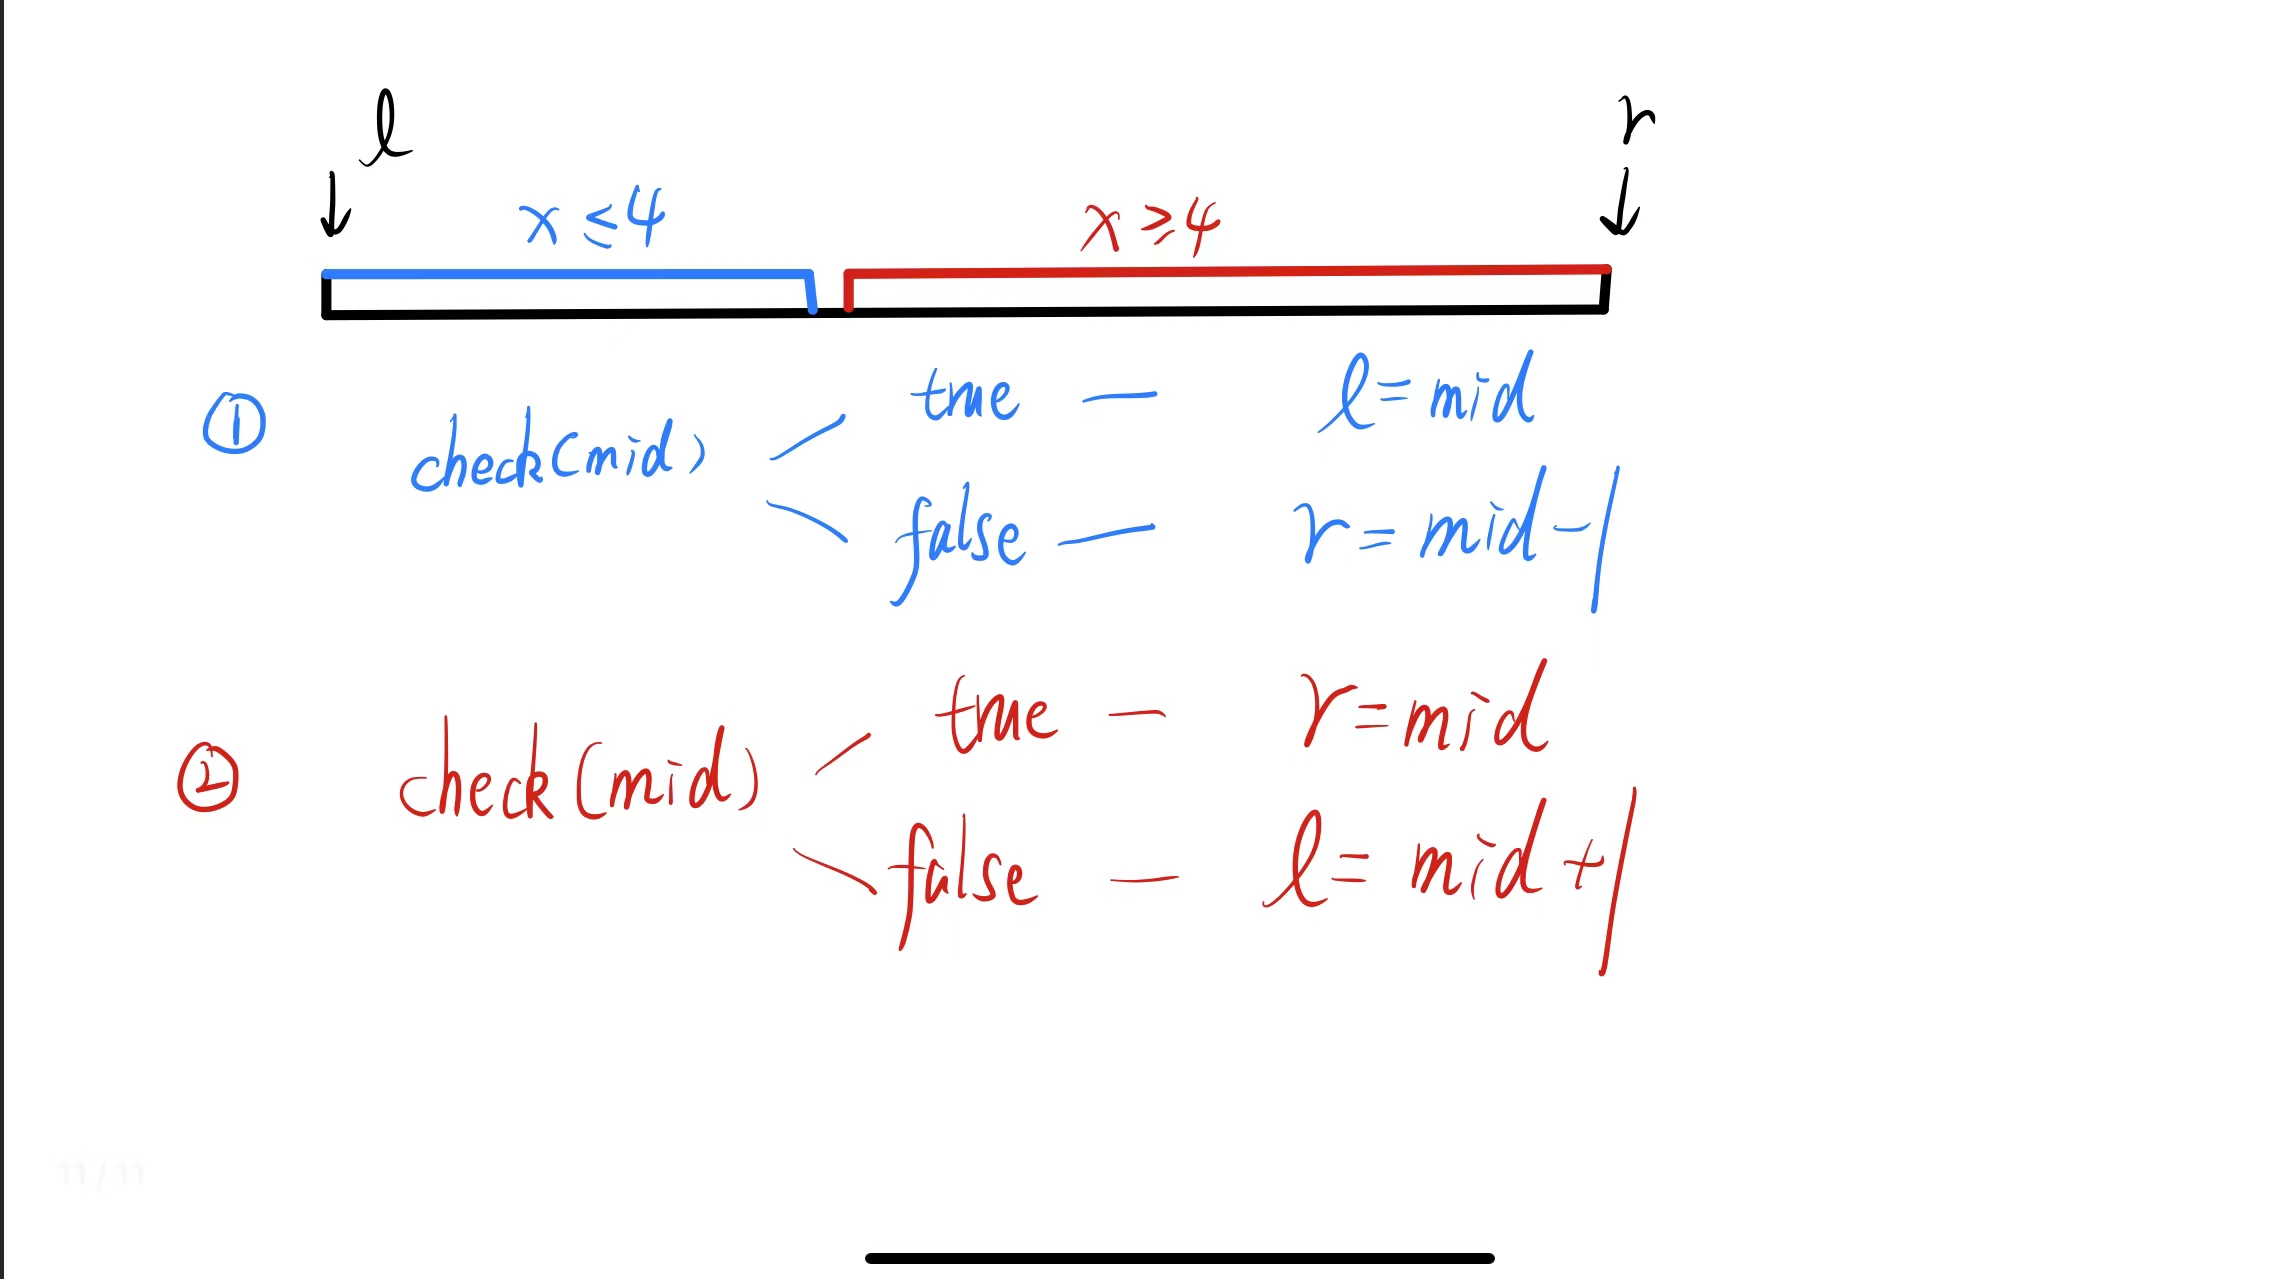 l r
x ≤ 4 x ≥ 4
① check(mid) true — l = mid
false — r = mid - 1
② check(mid) true — r = mid
false — l = mid + 1
11 / 11